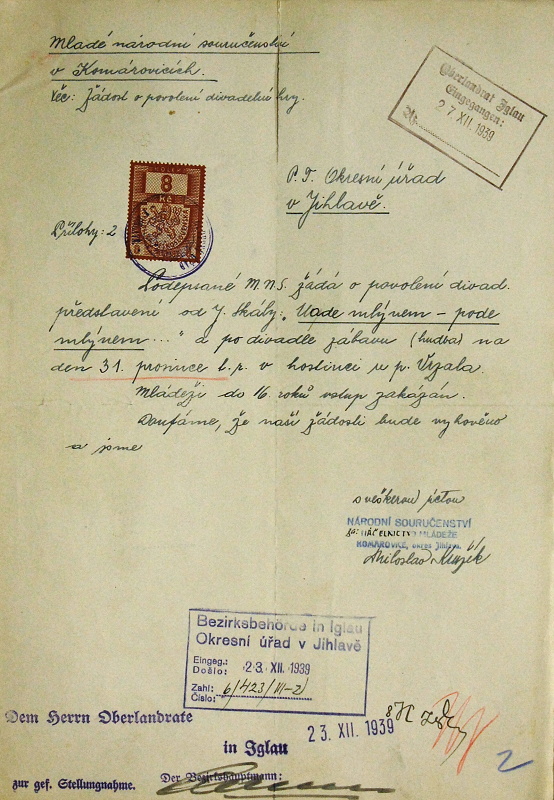 Mladé národní souručenství
v Komárovicích.
Věc: Žádost o povolení divadelní hry.
Oberlandrat Iglau
Eingegangen:
27. XII. 1939
Nr.
P. T. Okresní úřad
v Jihlavě.
8
Kč
Přílohy: 2
Podepsané M.N.S. žádá o povolení divad.
představení od J. Skály: „Nade mlýnem – pode
mlýnem..." a po divadle zábavu (hudba) na
den 31. prosince t. r. v hostinci u p. Vrzala.
Mládeži do 16 roků vstup zakázán.
Doufáme, že naší žádosti bude vyhověno
a jsme
s veškerou úctou
NÁRODNÍ SOURUČENSTVÍ
NÁČELNICTVO MLÁDEŽE
KOMAROVICE, okres Jihlava.
Miloslav
Bezirksbehörde in Iglau
Okresní úřad v Jihlavě
Eingeg.:
Došlo: 23. XII. 1939
Zahl:
Číslo: 6/423/III-2/
Dem Herrn Oberlandrate
23. XII. 1939
in Iglau
2
zur gef. Stellungnahme.
Der Bezirkshauptmann: